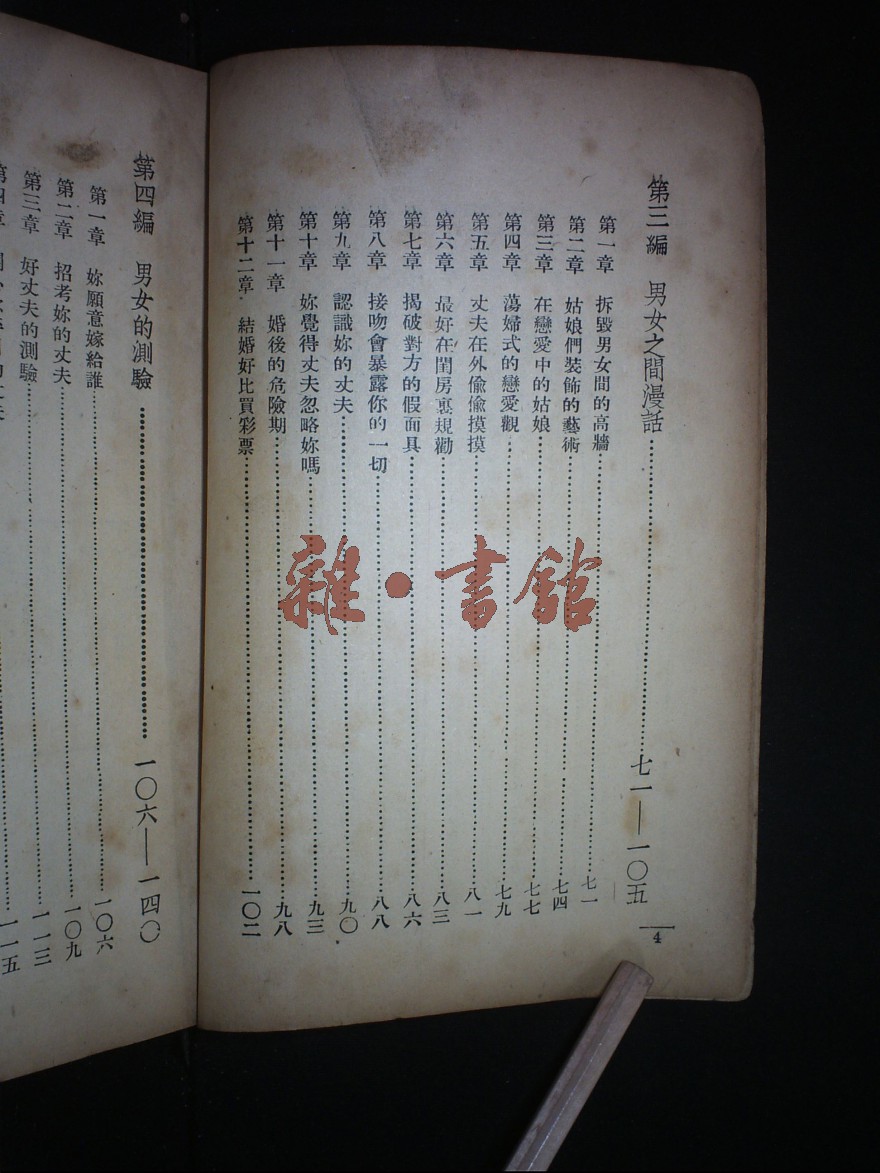 第三編 男女之間漫話……七一——一〇五
第一章 拆毀男女間的高牆……七一
第二章 姑娘們裝飾的藝術……七四
第三章 在戀愛中的姑娘……七七
第四章 蕩婦式的戀愛觀……七九
第五章 丈夫在外偷偷摸摸……八一
第六章 最好在閨房裏規勸……八三
第七章 揭破對方的假面具……八六
第八章 接吻會暴露你的一切……八八
第九章 認識妳的丈夫……九〇
第十章 妳覺得丈夫忽略妳嗎……九三
第十一章 婚後的危險期……九八
第十二章 結婚好比買彩票……一〇二
4
第四編 男女的測驗……一〇六——一四〇
第一章 妳願意嫁給誰……一〇六
第二章 招考妳的丈夫……一〇九
第三章 好丈夫的測驗……一一三
第四章
一一五
雜·書館